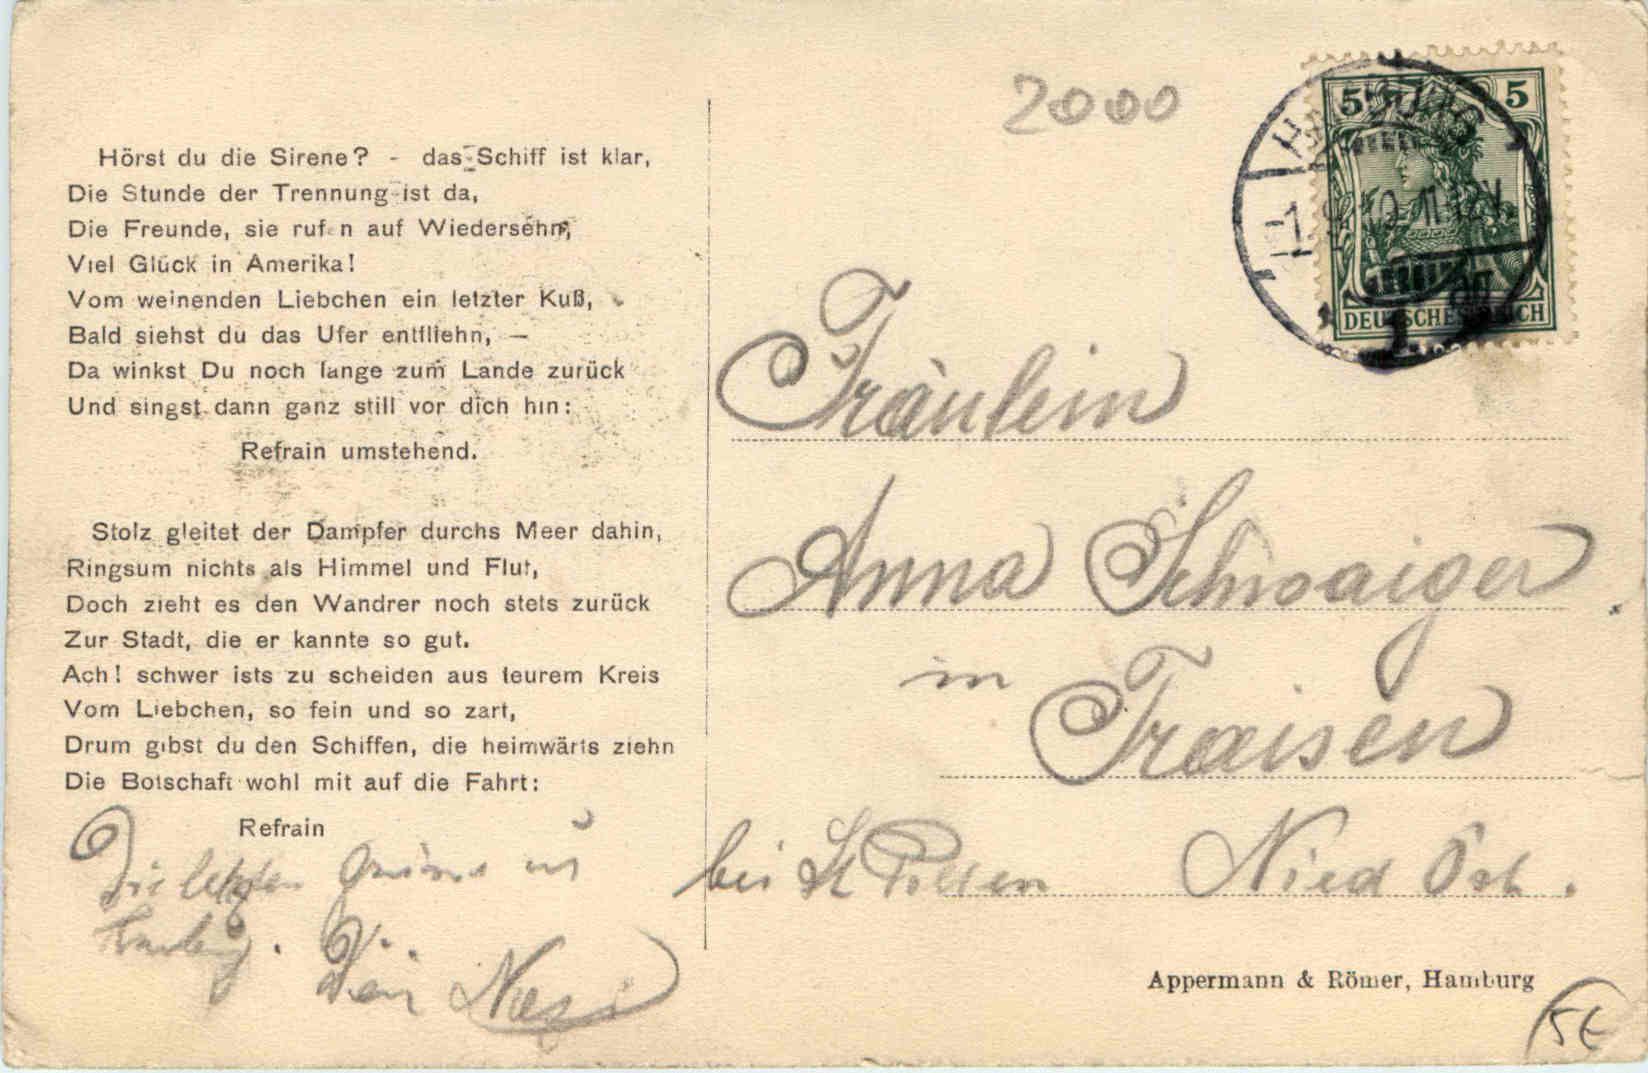 2000
Hörst du die Sirene? - das Schiff ist klar,
Die Stunde der Trennung ist da,
Die Freunde, sie rufen auf Wiedersehn,
Viel Glück in Amerika!
Vom weinenden Liebchen ein letzter Kuß,
Bald siehst du das Ufer entfliehn, —
Da winkst Du noch lange zum Lande zurück
Und singst dann ganz still vor dich hin:
Refrain umstehend.
Stolz gleitet der Dampfer durchs Meer dahin,
Ringsum nichts als Himmel und Flut,
Doch zieht es den Wandrer noch stets zurück
Zur Stadt, die er kannte so gut.
Ach! schwer ists zu scheiden aus teurem Kreis
Vom Liebchen, so fein und so zart,
Drum gibst du den Schiffen, die heimwärts ziehn
Die Botschaft wohl mit auf die Fahrt:
Refrain
Die letzten
Dein
5 5
DEUTSCHES REICH
HAMBURG
1
Fräulein
Anna Schwaiger
in
Traisen
bei St Pölten Nied Öst.
Appermann & Römer, Hamburg
5€